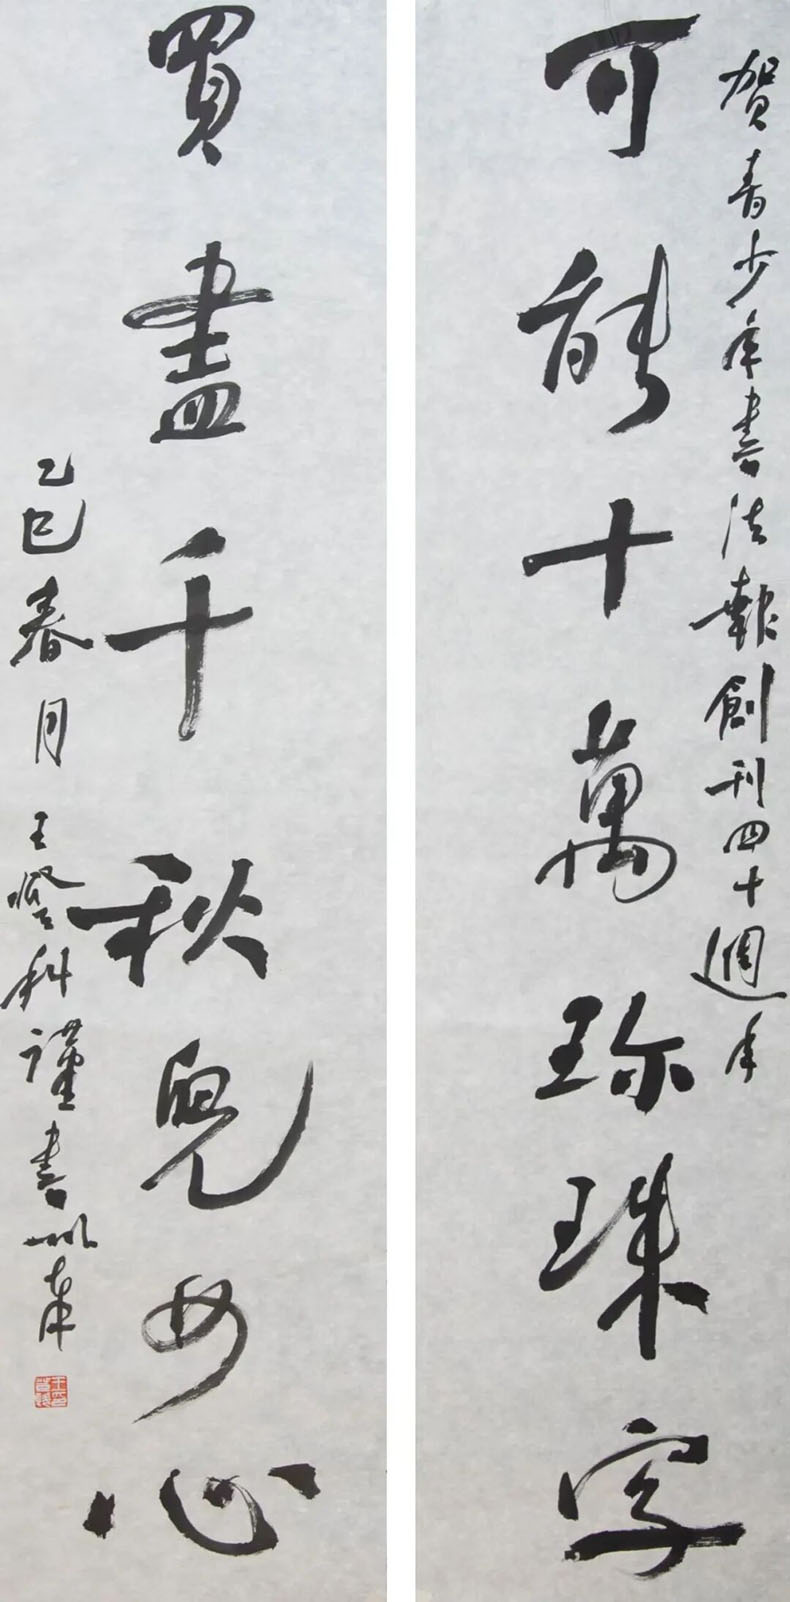 賀青少年書法報創刊四十週年
可能十萬珍珠字
買盡千秋兒女心
乙巳春月王登科謹書以奉